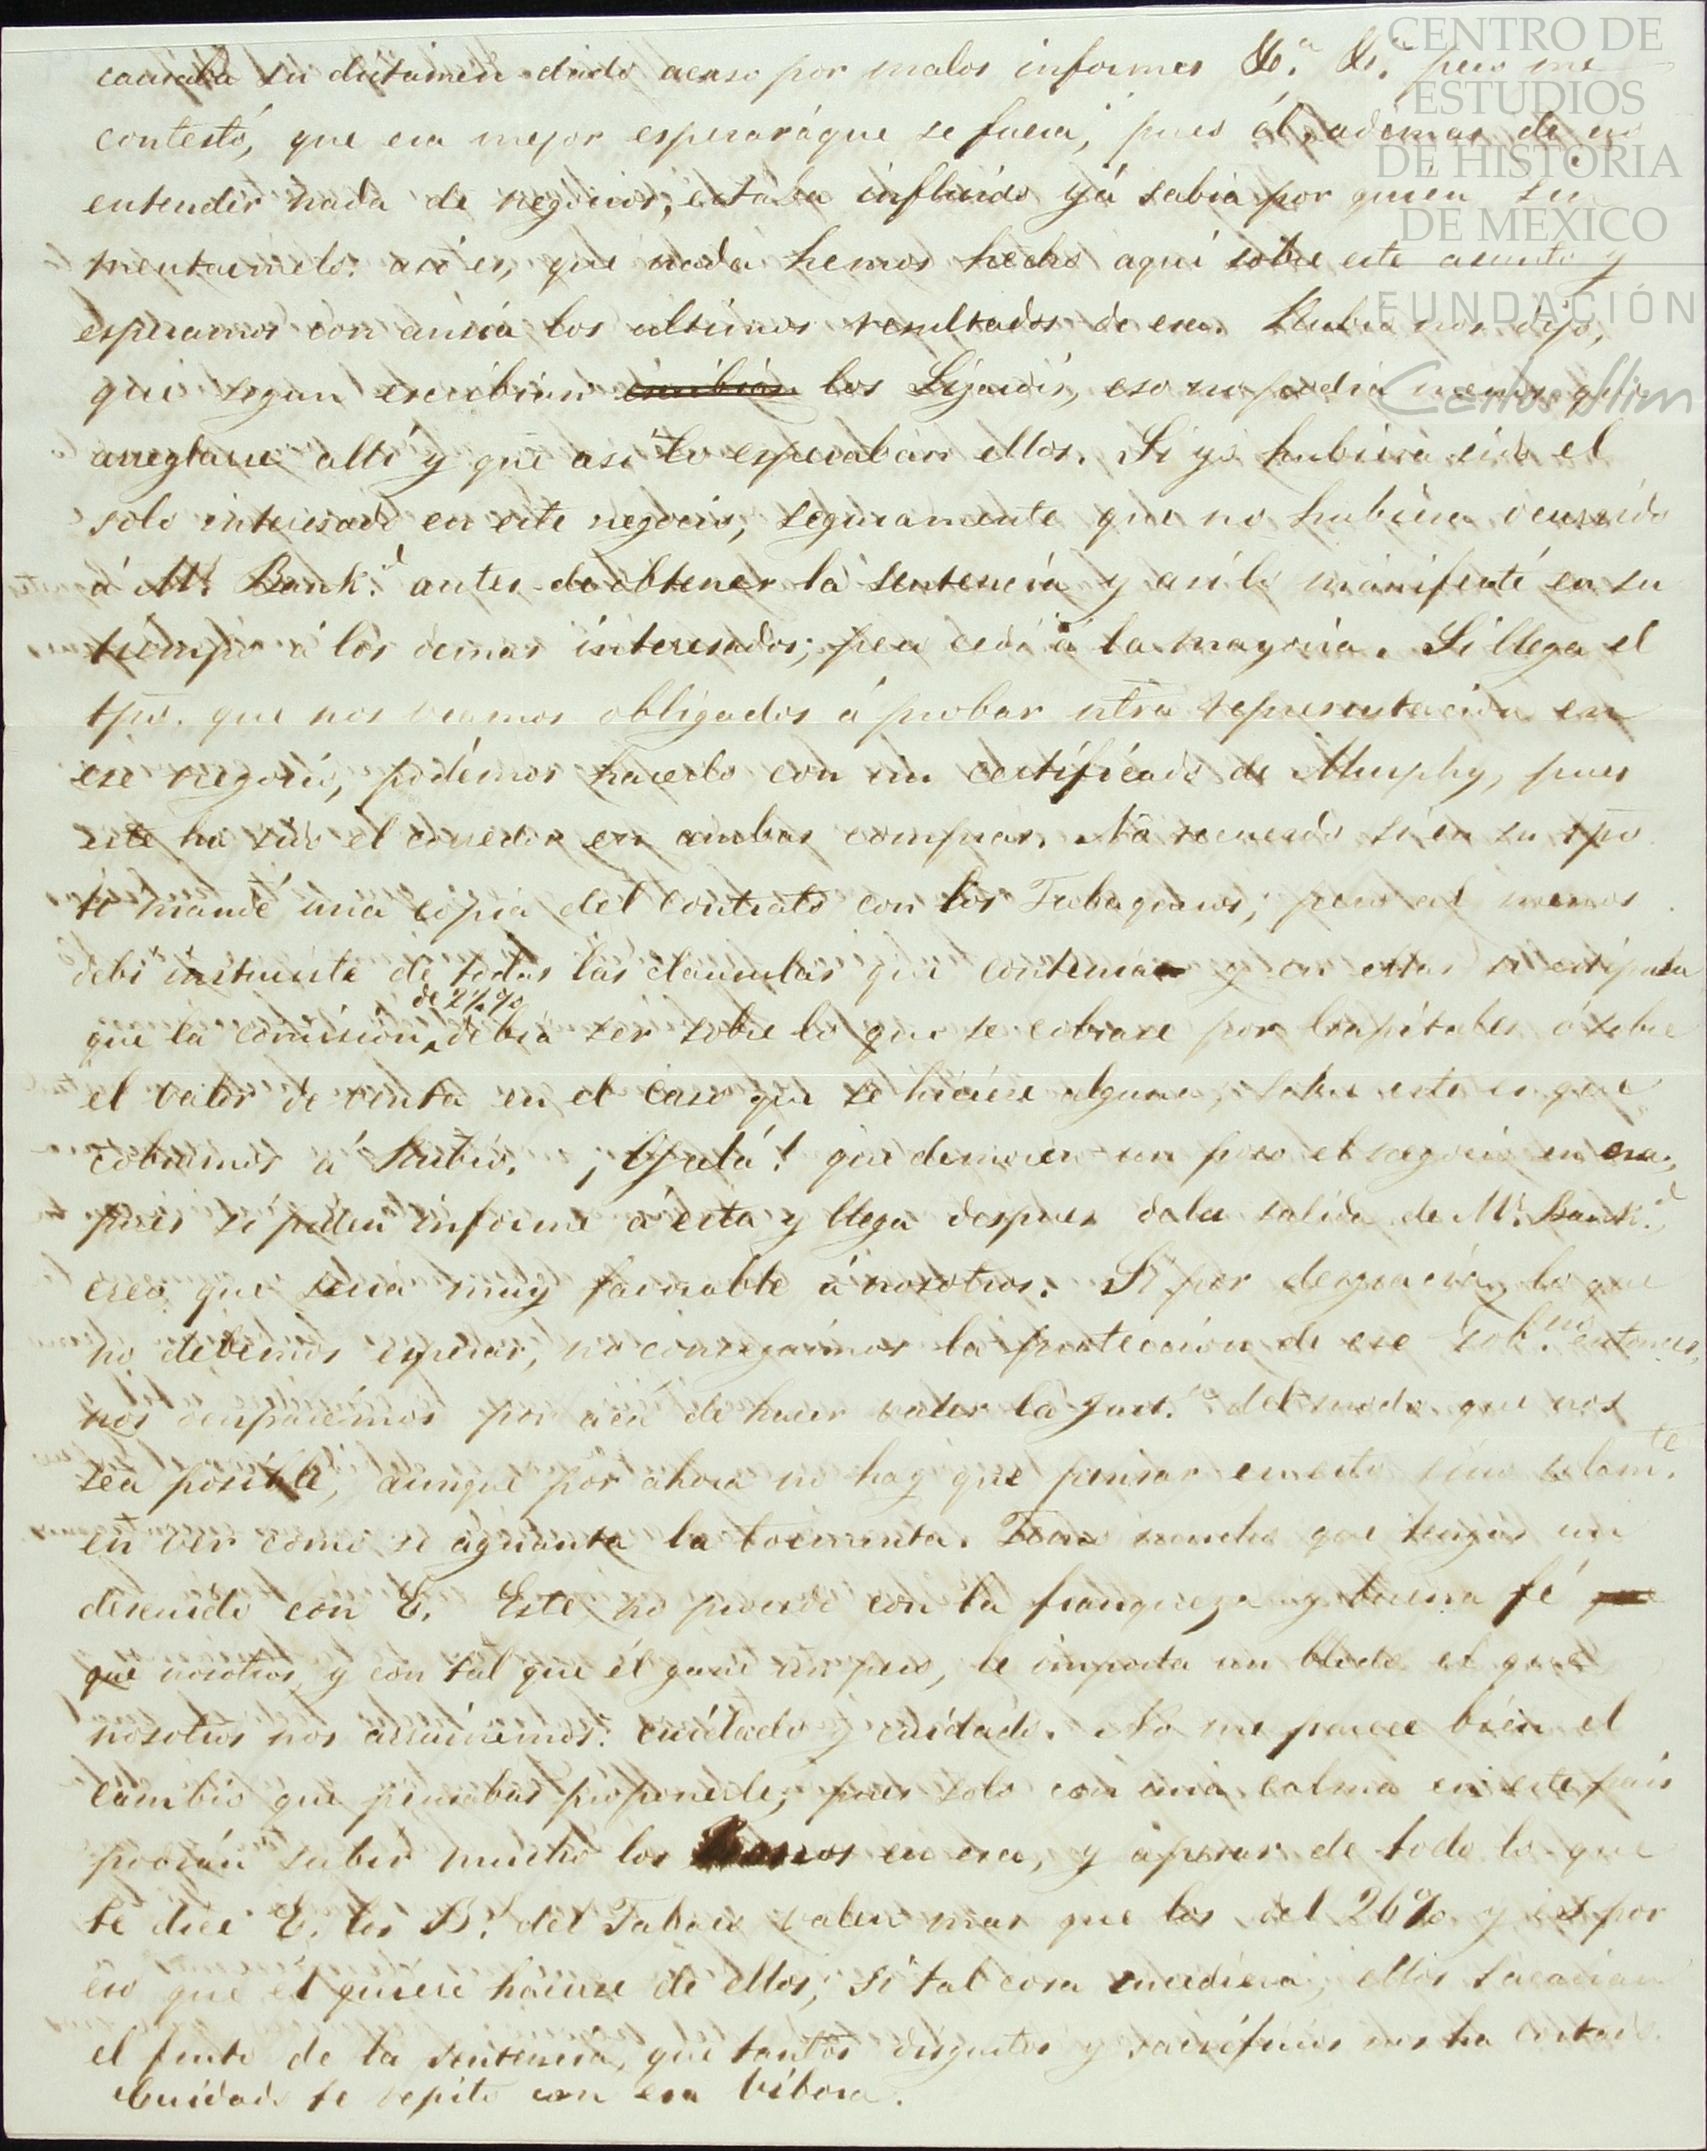 causaba su dictamen dado acaso por malos informes &.ª &.ª pero me
contestó, que era mejor esperar á que se fuera, pues él, ademas de no
entender nada de negocios, estaba influido yá sabia por quien
mentarmelo: asi es, que nada hemos hecho aqui sobre este asunto y
esperamos con ansia los ultimos resultados de esa. Rubio nos dijo,
que segun escribian escribian los Lizardis, eso no podia menos que
arreglarse alli y que asi lo esperaban ellos. Si yo hubiera sido el
solo interesado en este negocio, seguramente que no hubiera ocurrido
á Mr. Bank.d antes de obtener la sentencia y asi lo manifesté en su
tiempo á los demas interesados; pero cedi á la mayoria. Si llega el
tpo. que nos veamos obligados á probar ntra representacion en
ese negocio, podémos hacerlo con un certificado de Murphy, pues
este ha sido el corredor en ambas compras. No recuerdo si en su tpo
te mandé una copia del contrato con los Tabaqueros; pero al menos
debi instruirte de todas las clausulas que contenia y en estas se estipula
que la comision de 2½% debia ser sobre lo que se cobrase por Capitales ó sobre
el valor de venta en el caso que se hiciese alguna, sobre esto es que
cobramos á Rubio. ¡Ojalá! que demoren un poco el negocio en esa,
pues si piden informe á esta y llega despues de la salida de Mr. Bank.d
creo que seria muy favorable á nosotros. Si por desgracia, lo que
no debemos esperar, no conseguimos la proteccion de ese Gob.no entonces,
nos ocuparémos por acá de hacer valer la just.a del modo que nos
sea posible, aunque por ahora no hay que pensar en esto sino solam.te
en ver como se aguanta la tormenta. Temo mucho que tengas un
descuido con E. Este no procede con la franqueza y buena fé que
que nosotros, y con tal que él gane un peso, le importa un bledo el que
nosotros nos arruinemos: cuidado y cuidado. No me parece bien el
cambio que pensabas proponerle, pues solo con una calma en este pais
podrán subir mucho los bonos en esa, y apesar de todo lo que
te dice E. los B.s del Tabaco valen mas que los del 26% y es por
eso que él quiere hacerse de ellos; si tal cosa sucediera, ellos sacarian
el fruto de la sentencia, que tantos disgustos y sacrificios nos ha costado.
Cuidado te repito con esa bibora.
CENTRO DE
ESTUDIOS
DE HISTORIA
DE MEXICO
FUNDACIÓN
Carlos Slim